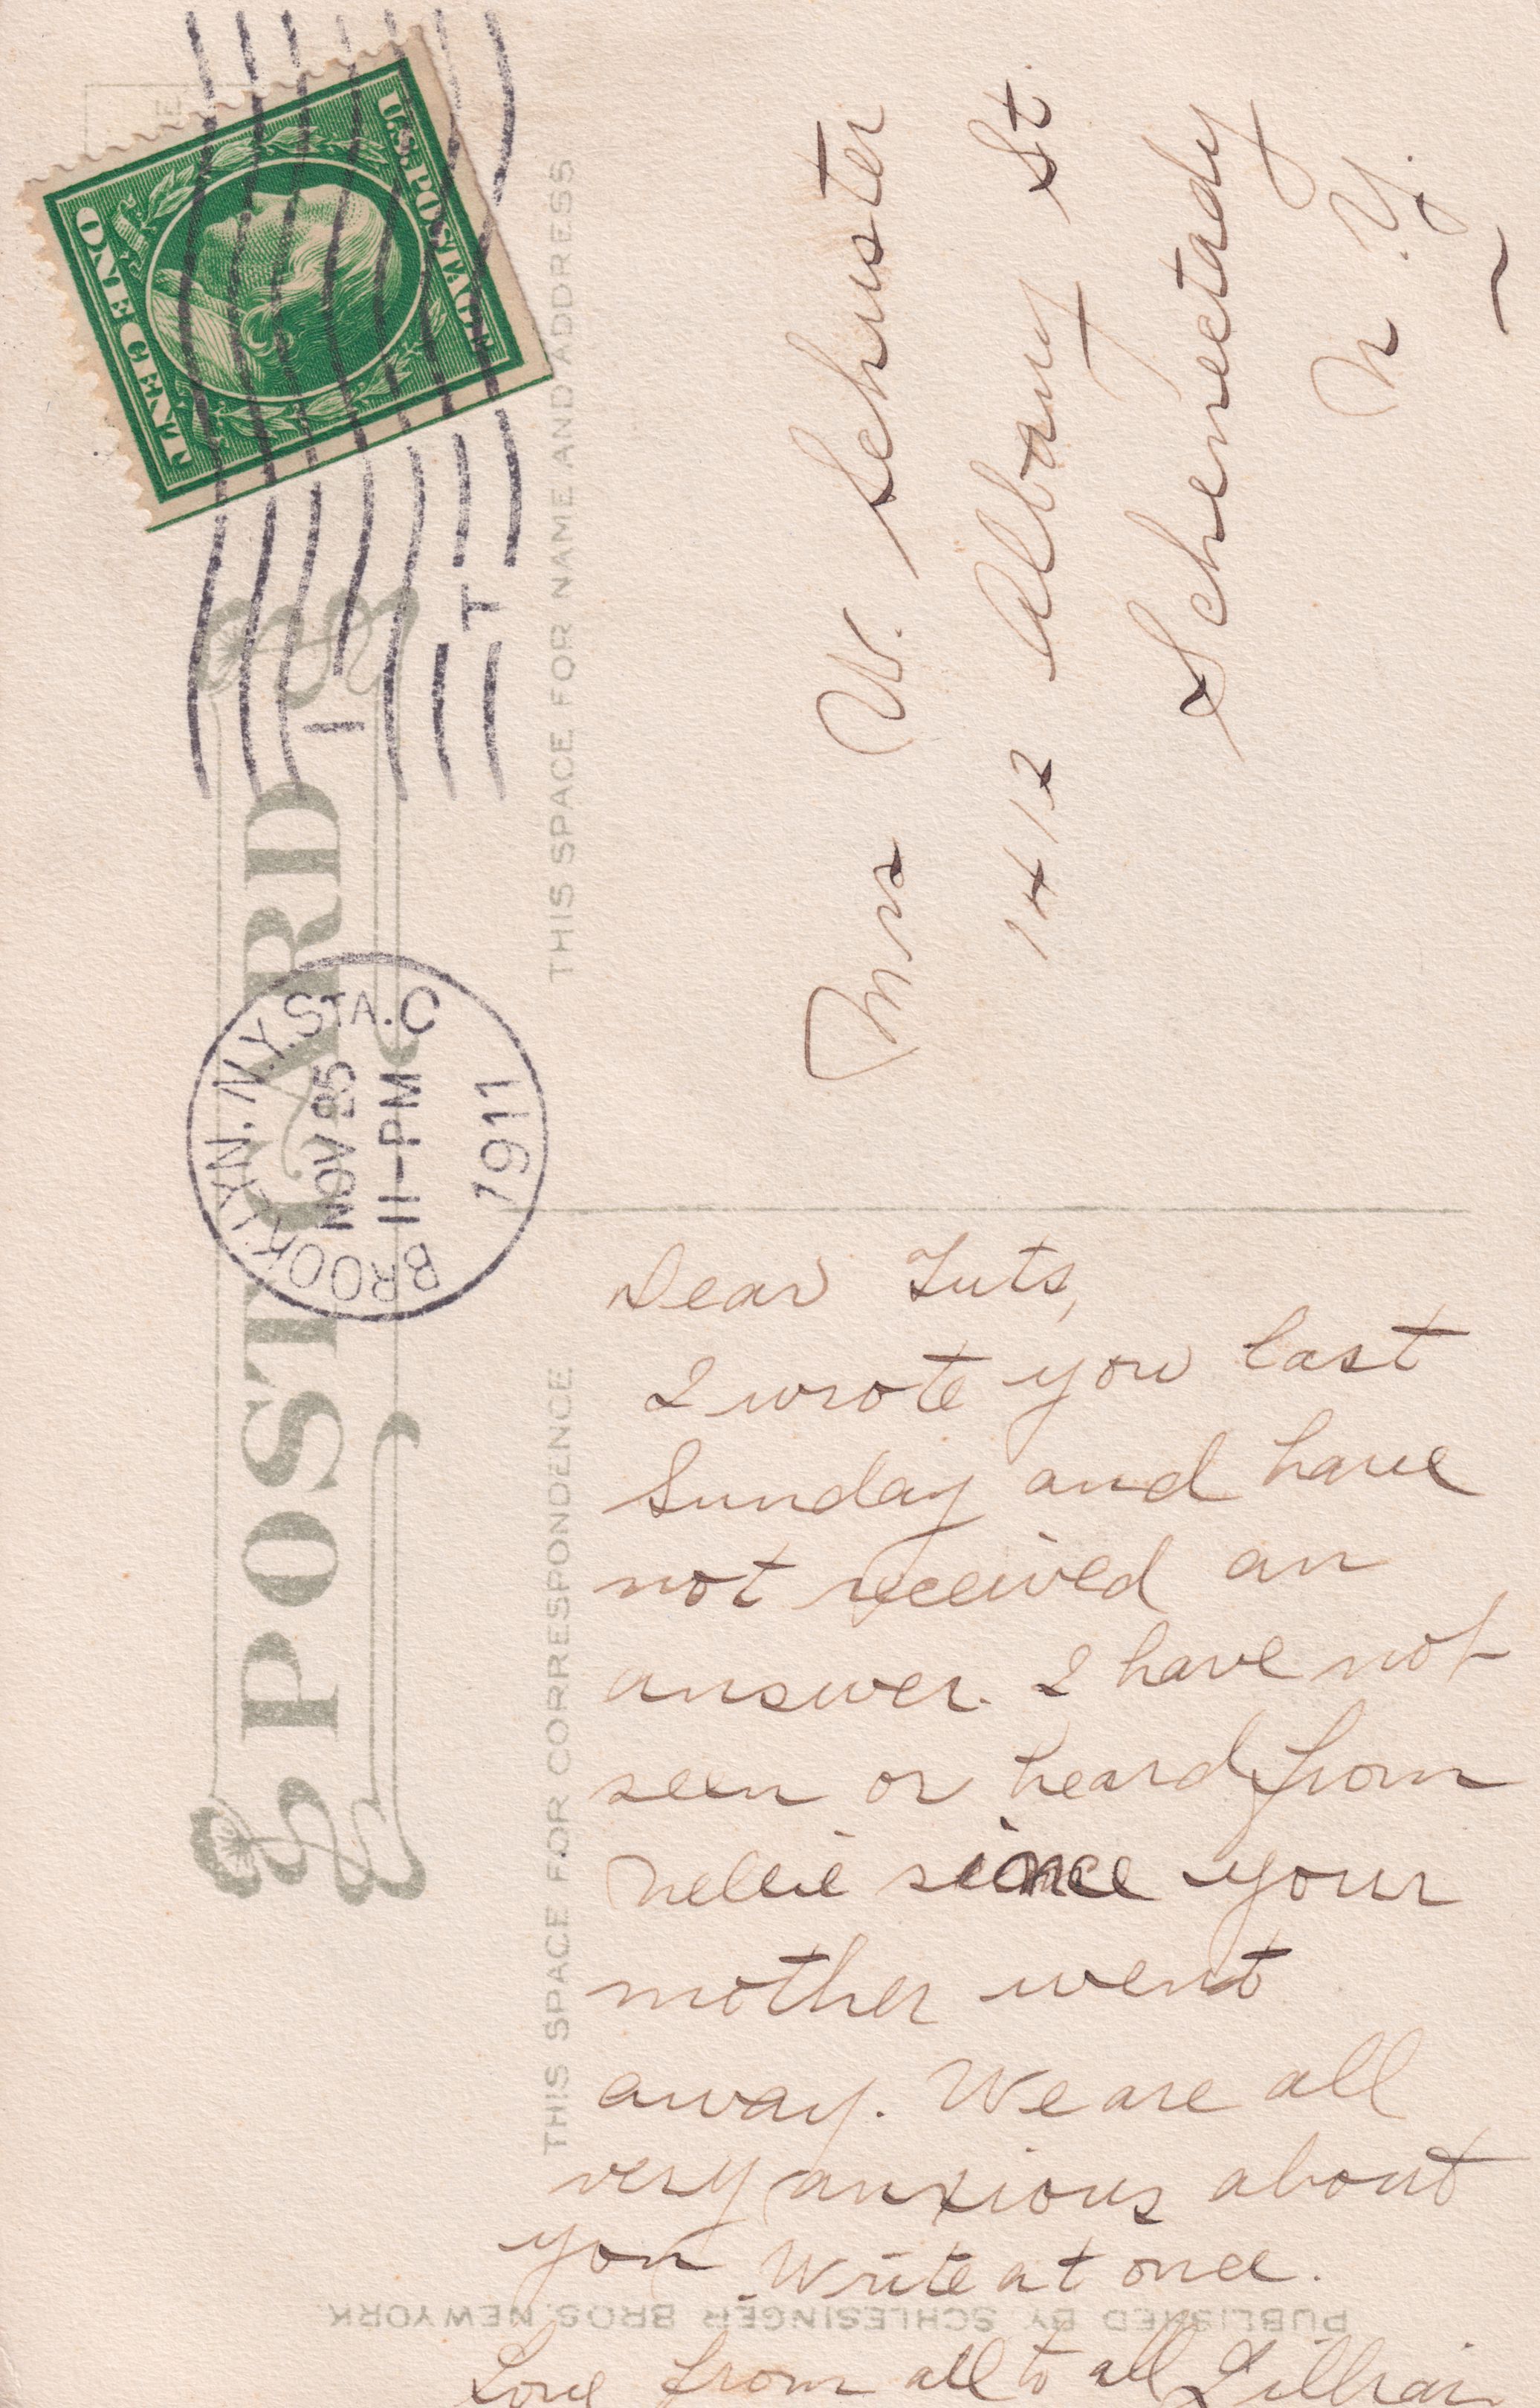 U.S. POSTAGE
ONE CENT
T
1
POST CARD
BROOKLYN, N.Y. STA. C
NOV 25
11-PM
1911
THIS SPACE FOR NAME AND ADDRESS
Mrs W. Schuster
1412 Albany St.
Schenectady
N.Y.
THIS SPACE FOR CORRESPONDENCE
Dear Tuts,
I wrote you last
Sunday and have
not received an
answer. I have not
seen or heard from
Nellie since your
mother went
away. We are all
very anxious about
you. Write at once.
Love from all to all Lillian
PUBLISHED BY SCHLESINGER BROS. NEW YORK